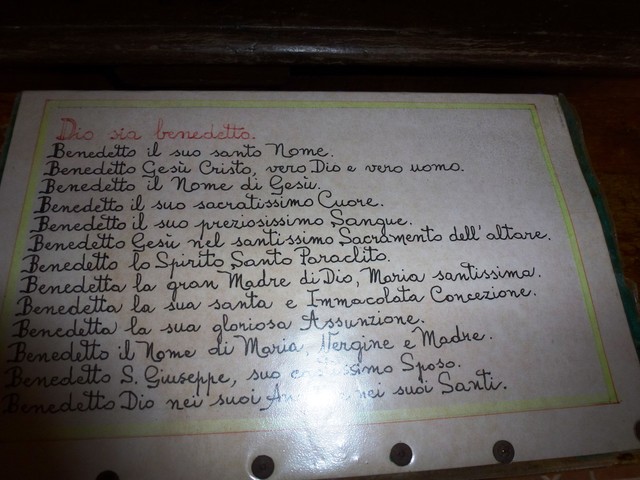 Dio sia benedetto.
Benedetto il suo santo Nome.
Benedetto Gesù Cristo, vero Dio e vero uomo.
Benedetto il Nome di Gesù.
Benedetto il suo sacratissimo Cuore.
Benedetto il suo preziosissimo Sangue.
Benedetto Gesù nel santissimo Sacramento dell'altare.
Benedetto lo Spirito Santo Paraclito.
Benedetta la gran Madre di Dio, Maria santissima.
Benedetta la sua santa e Immacolata Concezione.
Benedetta la sua gloriosa Assunzione.
Benedetto il Nome di Maria, Vergine e Madre.
Benedetto S. Giuseppe, suo Sposo.
Benedetto Dio nei suoi nei suoi Santi.